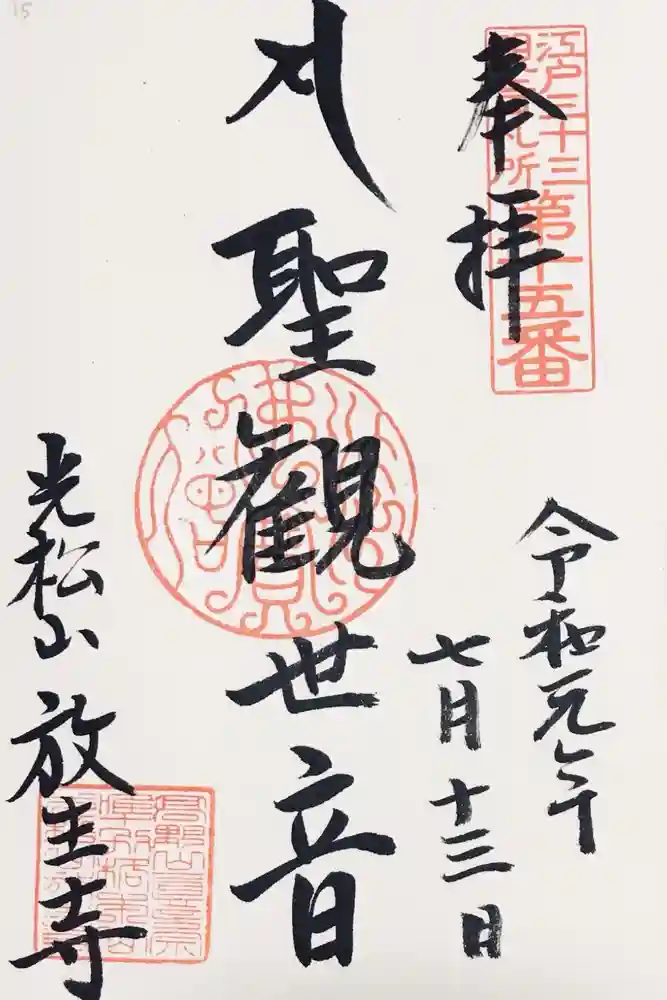 15
奉拝
江戸三十三
札所
第十五番
令和元年
七月十三日
聖觀世音
光松山
放生寺